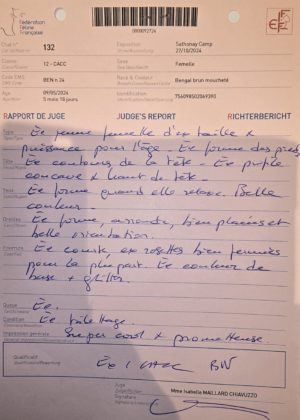 Fédération
Féline
Française
FIFe
0000092724
Chat n° 132 Exposition Sathonay Camp
27/10/2024
Classe 12 - CACC Sexe Femelle
Code EMS BEN n 24 Race & Couleur Bengal brun moucheté
Age 09/05/2024 Identification
5 mois 18 jours 756098502069393
RAPPORT DE JUGE JUDGE'S REPORT RICHTERBERICHT
Type Ex jeune femelle d'ex taille x
puissance pour l'âge. Ex forme des pieds
Tête Ex contours de la tête - Ex profil
concave x haut de tête.
Yeux Ex forme quand elle relaxe. Belle
couleur.
Oreilles Ex forme, arrondie, bien placées et
belle orientation.
Fourrure Ex courte, ex rosettes bien fermées
pour la plupart. Ex couleur de
base + glitter.
Queue Ex.
Condition Ex toilettage.
Impression générale Super cool x prometteuse.
Qualificatif Ex 1 CACC BIV
Juge Mme Isabelle MAILLARD CHIAVUZZO
Signature